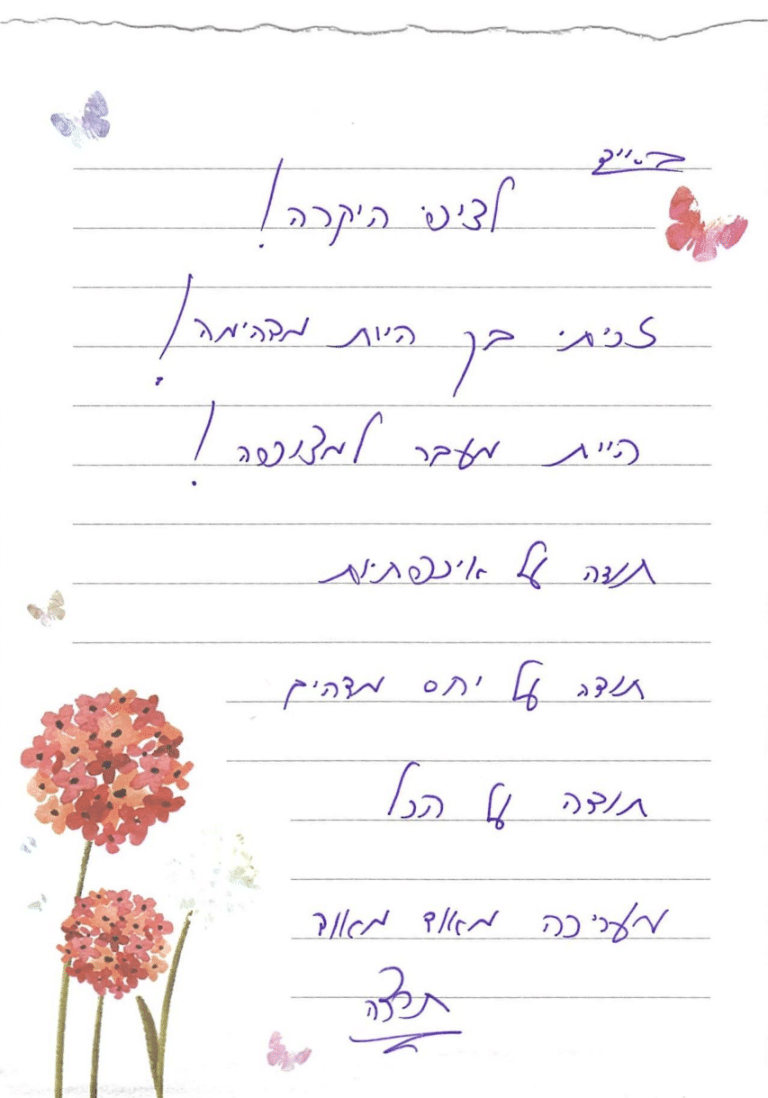 לציפי היקרה!
זכיתי בך היות מדהימה!
היית מעבר למצופה!
תודה על אינפתיות
תודה על יחס מדהים
תודה על הכל
מעריכה מאוד מאוד
תרצה